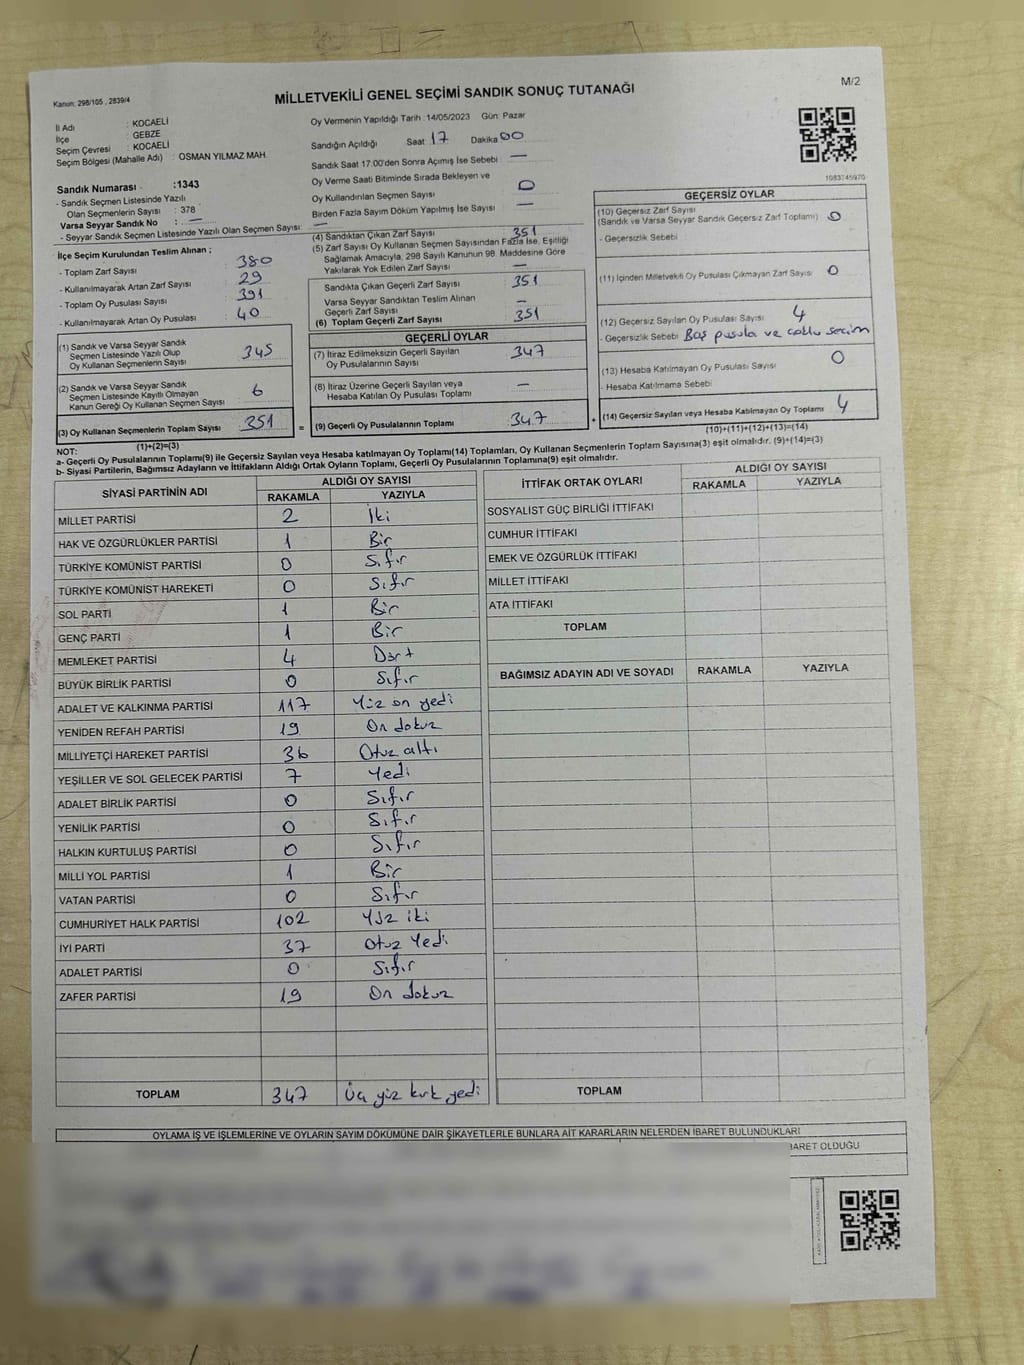 Kanun: 298/105 , 2839/4
MİLLETVEKİLİ GENEL SEÇİMİ SANDIK SONUÇ TUTANAĞI
M/2
İl Adı : KOCAELİ
İlçe : GEBZE
Seçim Çevresi : KOCAELİ
Seçim Bölgesi (Mahalle Adı) : OSMAN YILMAZ MAH.
Oy Vermenin Yapıldığı Tarih : 14/05/2023 Gün: Pazar
Sandığın Açıldığı Saat 17 Dakika 00
Sandık Saat 17:00'den Sonra Açımış İse Sebebi —
Oy Verme Saati Bitiminde Sırada Bekleyen ve
Oy Kullandırılan Seçmen Sayısı 0
Birden Fazla Sayım Döküm Yapılmış İse Sayısı —
1083745970
Sandık Numarası : 1343
- Sandık Seçmen Listesinde Yazılı
Olan Seçmenlerin Sayısı : 378
Varsa Seyyar Sandık No : —
- Seyyar Sandık Seçmen Listesinde Yazılı Olan Seçmen Sayısı: —
İlçe Seçim Kurulundan Teslim Alınan ;
- Toplam Zarf Sayısı 380
- Kullanılmayarak Artan Zarf Sayısı 29
- Toplam Oy Pusulası Sayısı 391
- Kullanılmayarak Artan Oy Pusulası 40
(1) Sandık ve Varsa Seyyar Sandık
Seçmen Listesinde Yazılı Olup
Oy Kullanan Seçmenlerin Sayısı 345
(2) Sandık ve Varsa Seyyar Sandık
Seçmen Listesinde Kayıtlı Olmayan
Kanun Gereği Oy Kullanan Seçmen Sayısı 6
(3) Oy Kullanan Seçmenlerin Toplam Sayısı 351
(1)+(2)=(3)
(4) Sandıktan Çıkan Zarf Sayısı 351
(5) Zarf Sayısı Oy Kullanan Seçmen Sayısından Fazla İse, Eşitliği
Sağlamak Amacıyla, 298 Sayılı Kanunun 98. Maddesine Göre
Yakılarak Yok Edilen Zarf Sayısı —
Sandıkta Çıkan Geçerli Zarf Sayısı 351
Varsa Seyyar Sandıktan Teslim Alınan
Geçerli Zarf Sayısı —
(6) Toplam Geçerli Zarf Sayısı 351
GEÇERLİ OYLAR
(7) İtiraz Edilmeksizin Geçerli Sayılan
Oy Pusulalarının Sayısı 347
(8) İtiraz Üzerine Geçerli Sayılan veya
Hesaba Katılan Oy Pusulası Toplamı —
= (9) Geçerli Oy Pusulalarının Toplamı 347 +
GEÇERSİZ OYLAR
(10) Geçersiz Zarf Sayısı
(Sandık ve Varsa Seyyar Sandık Geçersiz Zarf Toplamı) 0
- Geçersizlik Sebebi
(11) İçinden Milletvekili Oy Pusulası Çıkmayan Zarf Sayısı 0
(12) Geçersiz Sayılan Oy Pusulası Sayısı 4
- Geçersizlik Sebebi Boş pusula ve çoklu seçim
(13) Hesaba Katılmayan Oy Pusulası Sayısı 0
- Hesaba Katılmama Sebebi
(14) Geçersiz Sayılan veya Hesaba Katılmayan Oy Toplamı 4
(10)+(11)+(12)+(13)=(14)
NOT:
a- Geçerli Oy Pusulalarının Toplamı(9) ile Geçersiz Sayılan veya Hesaba katılmayan Oy Toplamı(14) Toplamları, Oy Kullanan Seçmenlerin Toplam Sayısına(3) eşit olmalıdır. (9)+(14)=(3)
b- Siyasi Partilerin, Bağımsız Adayların ve İttifakların Aldığı Ortak Oyların Toplamı, Geçerli Oy Pusulalarının Toplamına(9) eşit olmalıdır.
SİYASİ PARTİNİN ADI ALDIĞI OY SAYISI
RAKAMLA YAZIYLA
MİLLET PARTİSİ 2 İki
HAK VE ÖZGÜRLÜKLER PARTİSİ 1 Bir
TÜRKİYE KOMÜNİST PARTİSİ 0 Sıfır
TÜRKİYE KOMÜNİST HAREKETİ 0 Sıfır
SOL PARTİ 1 Bir
GENÇ PARTİ 1 Bir
MEMLEKET PARTİSİ 4 Dört
BÜYÜK BİRLİK PARTİSİ 0 Sıfır
ADALET VE KALKINMA PARTİSİ 117 Yüz on yedi
YENİDEN REFAH PARTİSİ 19 On dokuz
MİLLİYETÇİ HAREKET PARTİSİ 36 Otuz altı
YEŞİLLER VE SOL GELECEK PARTİSİ 7 Yedi
ADALET BİRLİK PARTİSİ 0 Sıfır
YENİLİK PARTİSİ 0 Sıfır
HALKIN KURTULUŞ PARTİSİ 0 Sıfır
MİLLİ YOL PARTİSİ 1 Bir
VATAN PARTİSİ 0 Sıfır
CUMHURİYET HALK PARTİSİ 102 Yüz iki
İYİ PARTİ 37 Otuz Yedi
ADALET PARTİSİ 0 Sıfır
ZAFER PARTİSİ 19 On dokuz
TOPLAM 347 Üç yüz kırk yedi
İTTİFAK ORTAK OYLARI ALDIĞI OY SAYISI
RAKAMLA YAZIYLA
SOSYALİST GÜÇ BİRLİĞİ İTTİFAKI
CUMHUR İTTİFAKI
EMEK VE ÖZGÜRLÜK İTTİFAKI
MİLLET İTTİFAKI
ATA İTTİFAKI
TOPLAM
BAĞIMSIZ ADAYIN ADI VE SOYADI RAKAMLA YAZIYLA
TOPLAM
OYLAMA İŞ VE İŞLEMLERİNE VE OYLARIN SAYIM DÖKÜMÜNE DAİR ŞİKAYETLERLE BUNLARA AİT KARARLARIN NELERDEN İBARET BULUNDUKLARI
İBARET OLDUĞU